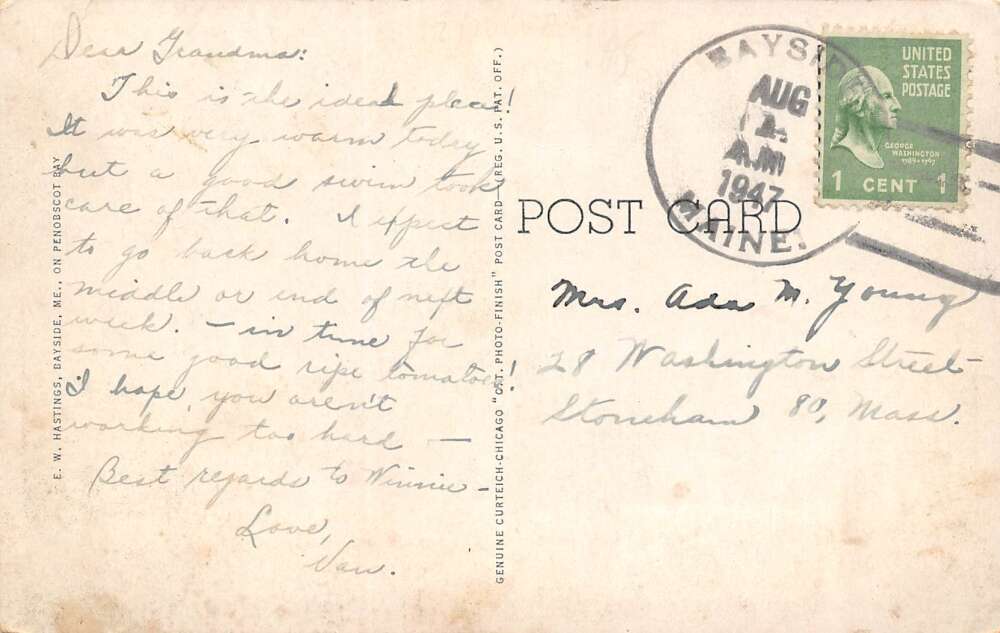 Dear Grandma:
This is the ideal place!
It was very warm today
but a good swim took
care of that. I expect
to go back home the
middle or end of next
week. – in time for
some good ripe tomatoes!
I hope you aren't
working too hard —
Best regards to Winnie –
Love,
Van.
E. W. HASTINGS, BAYSIDE, ME., ON PENOBSCOT BAY
GENUINE CURTEICH-CHICAGO "C.T. PHOTO-FINISH" POST CARD (REG. U.S. PAT. OFF.)
BAYSIDE
AUG
AM
1947
MAINE.
UNITED
STATES
POSTAGE
GEORGE
WASHINGTON
1789-1797
1 CENT 1
POST CARD
Mrs. Ada M. Young
28 Washington Street
Stoneham 80, Mass.